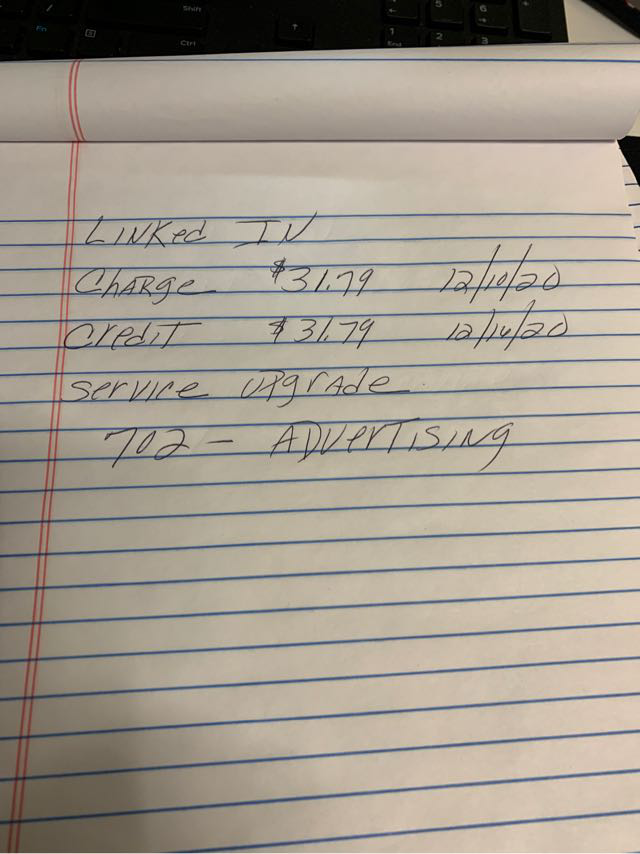 Shift
Fn
Ctrl
5
6
1
End
2
3
LINKed IN
CHARge $31.79 12/10/20
Credit $31.79 12/16/20
Service UPgrAde
702 - ADverTISINg